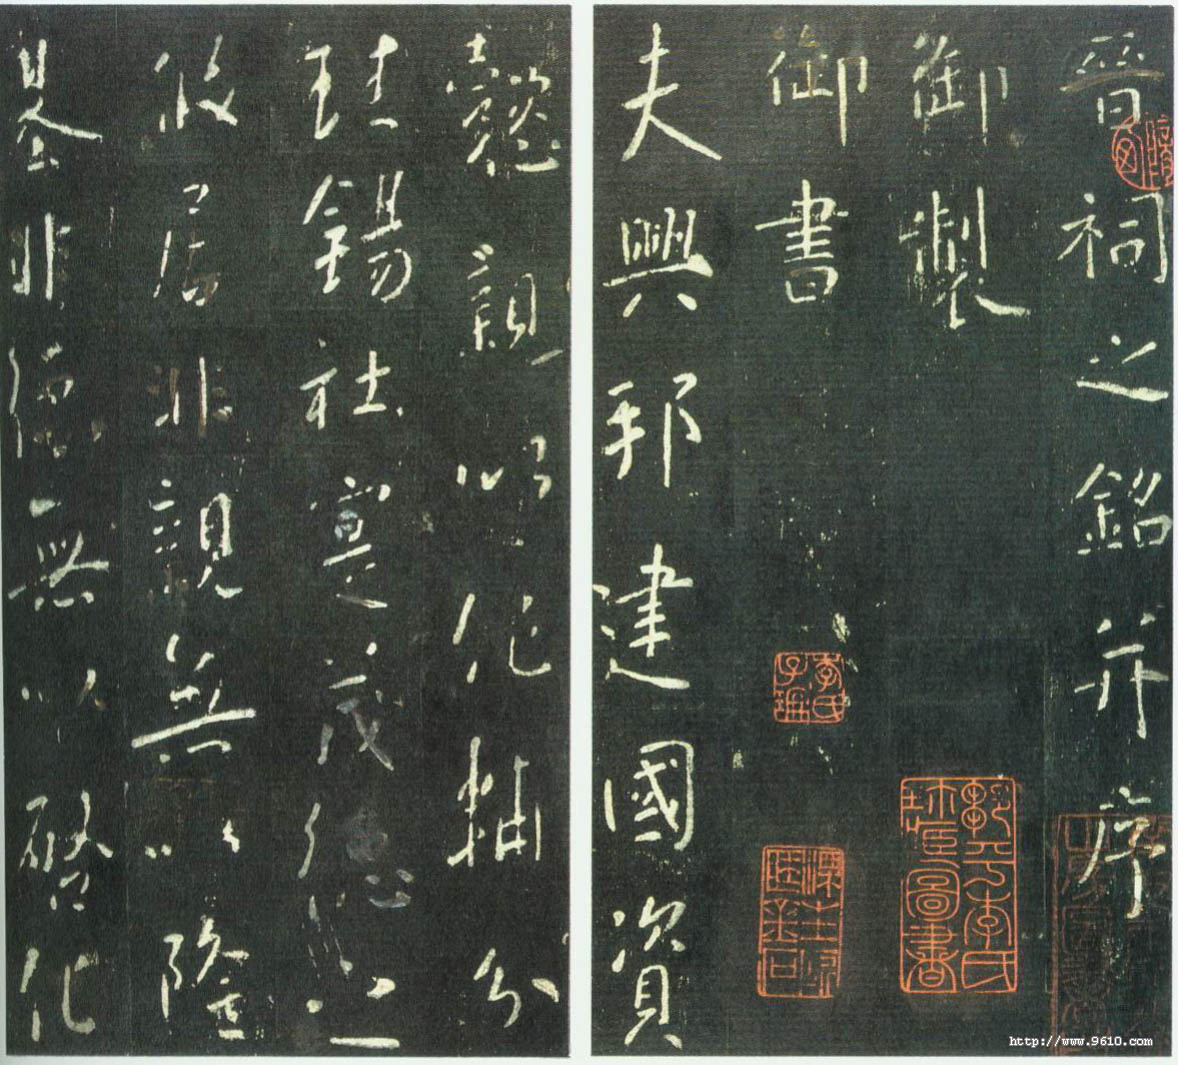 晉祠之銘并序
御製
御書
夫興邦建國資
懿親以作輔分
珪錫社寔茂德之
攸居非親無以隆
基非德無以啓化
http://www.9610.com